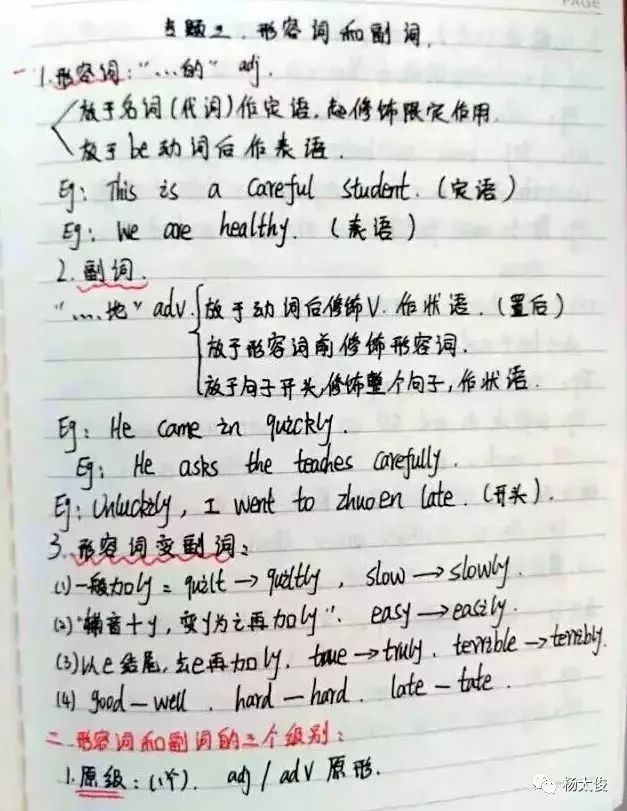 PAGE
专题二. 形容词和副词.
一 1.形容词:“...的” adj.
放于名词(代词)作定语,起修饰限定作用.
放于be动词后作表语.
Eg: This is a careful student. (定语)
Eg: We are healthy. (表语)
2.副词.
“....地” adv. 放于动词后修饰V. 作状语. (置后)
放于形容词前修饰形容词.
放于句子开头,修饰整个句子,作状语.
Eg: He came in quickly.
Eg: He asks the teaches carefully.
Eg: Unluckily, I went to zhuoen late. (开头).
3.形容词变副词:
(1)一般加ly: quilt → quiltly, slow → slowly.
(2)“辅音+y, 变y为i再加ly”. easy → easily.
(3)以e结尾,去e再加ly. true → truly. terrible → terribly.
(4) good — well. hard — hard. late — tate.
二.形容词和副词的三个级别:
1.原级: (1个). adj / adv 原形.
杨太俊